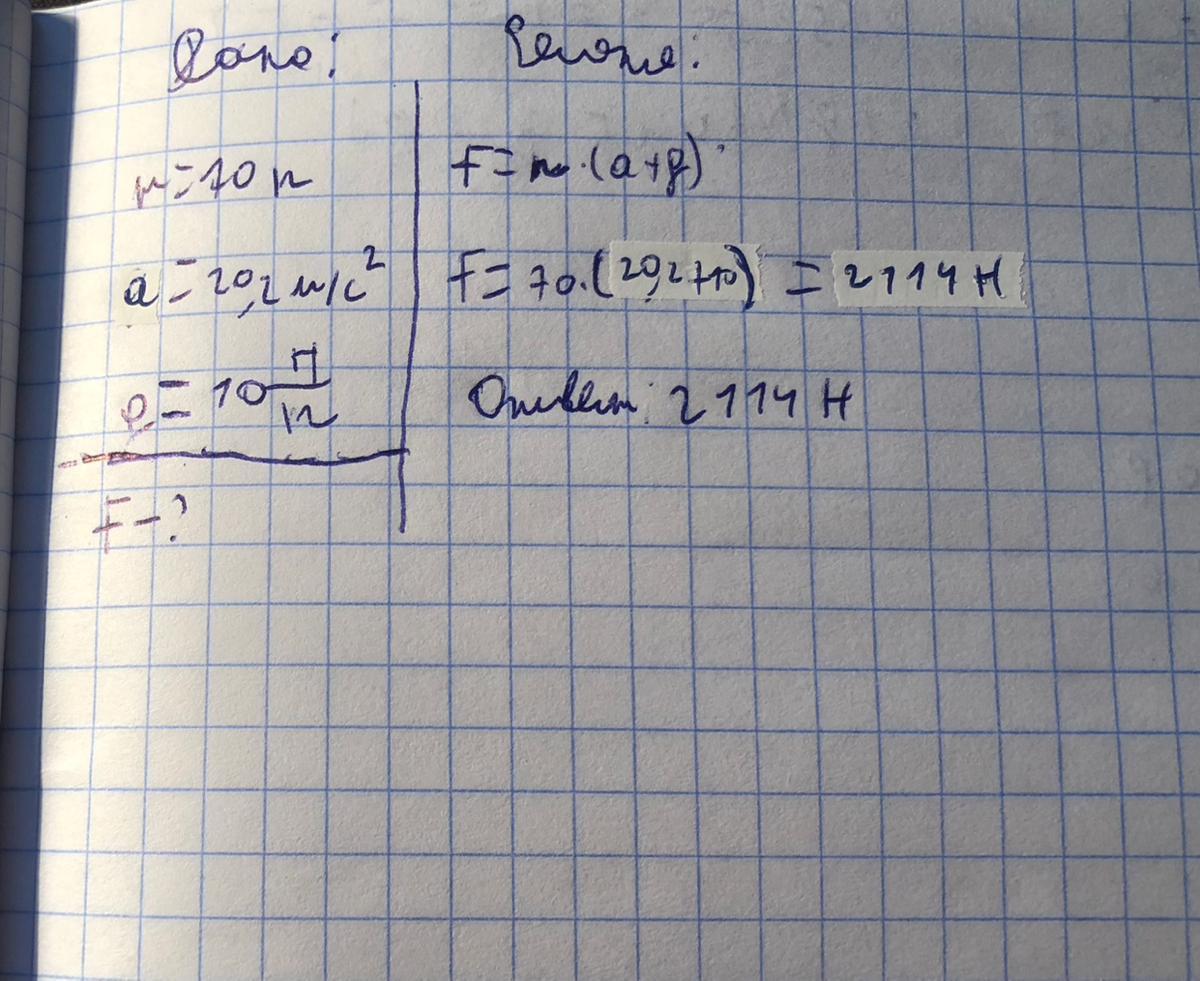 Дано:
m=70 кг
a=20,2 м/с²
g=10 Н/кг
F-?
Решение:
F=m·(a+g)
F=70·(20,2+10)=2114 Н
Ответ: 2114 Н